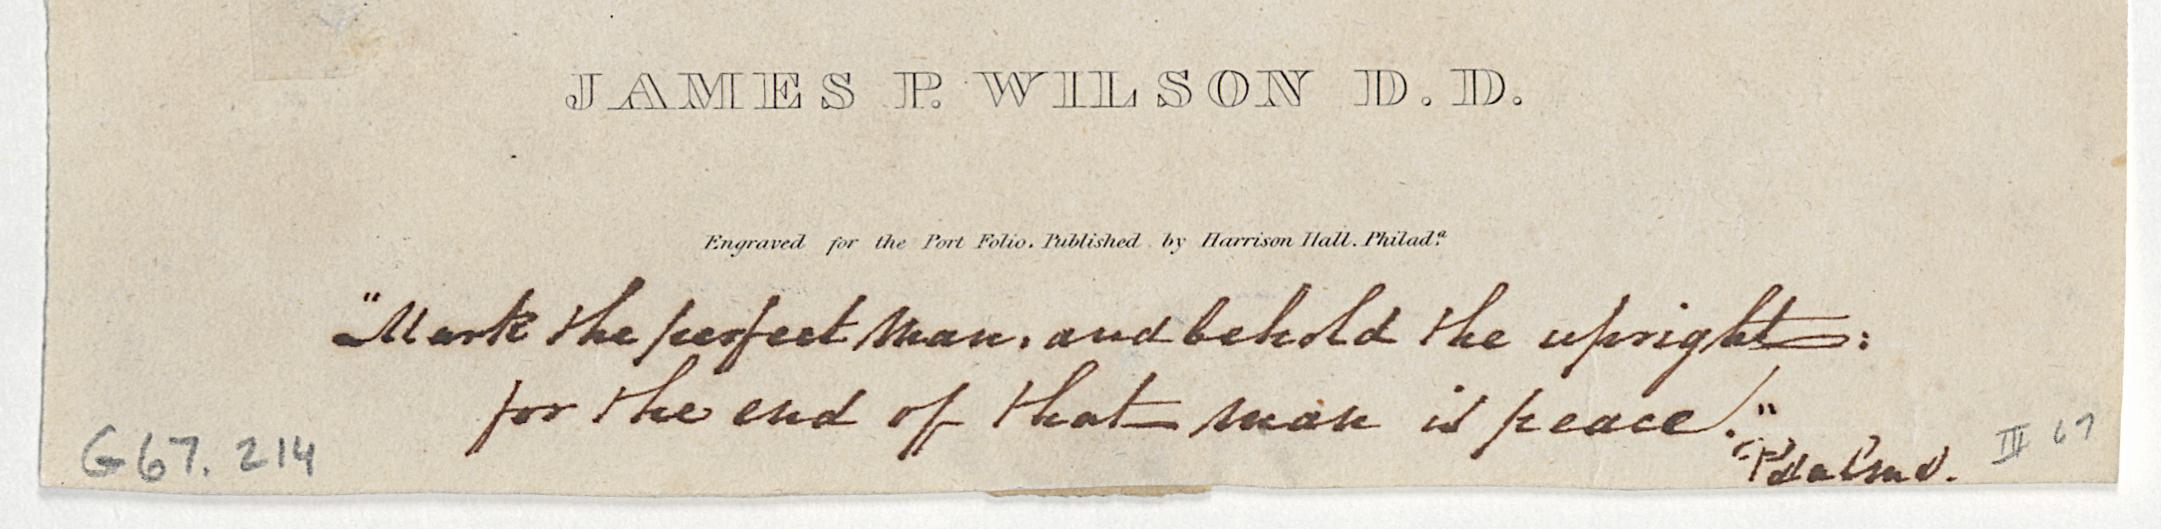 JAMES P. WILSON D. D.
Engraved for the Port Folio. Published by Harrison Hall. Philad.ª
"Mark the perfect Man, and behold the upright:
for the end of that man is peace!."
Psalms.
G67.214
III 67